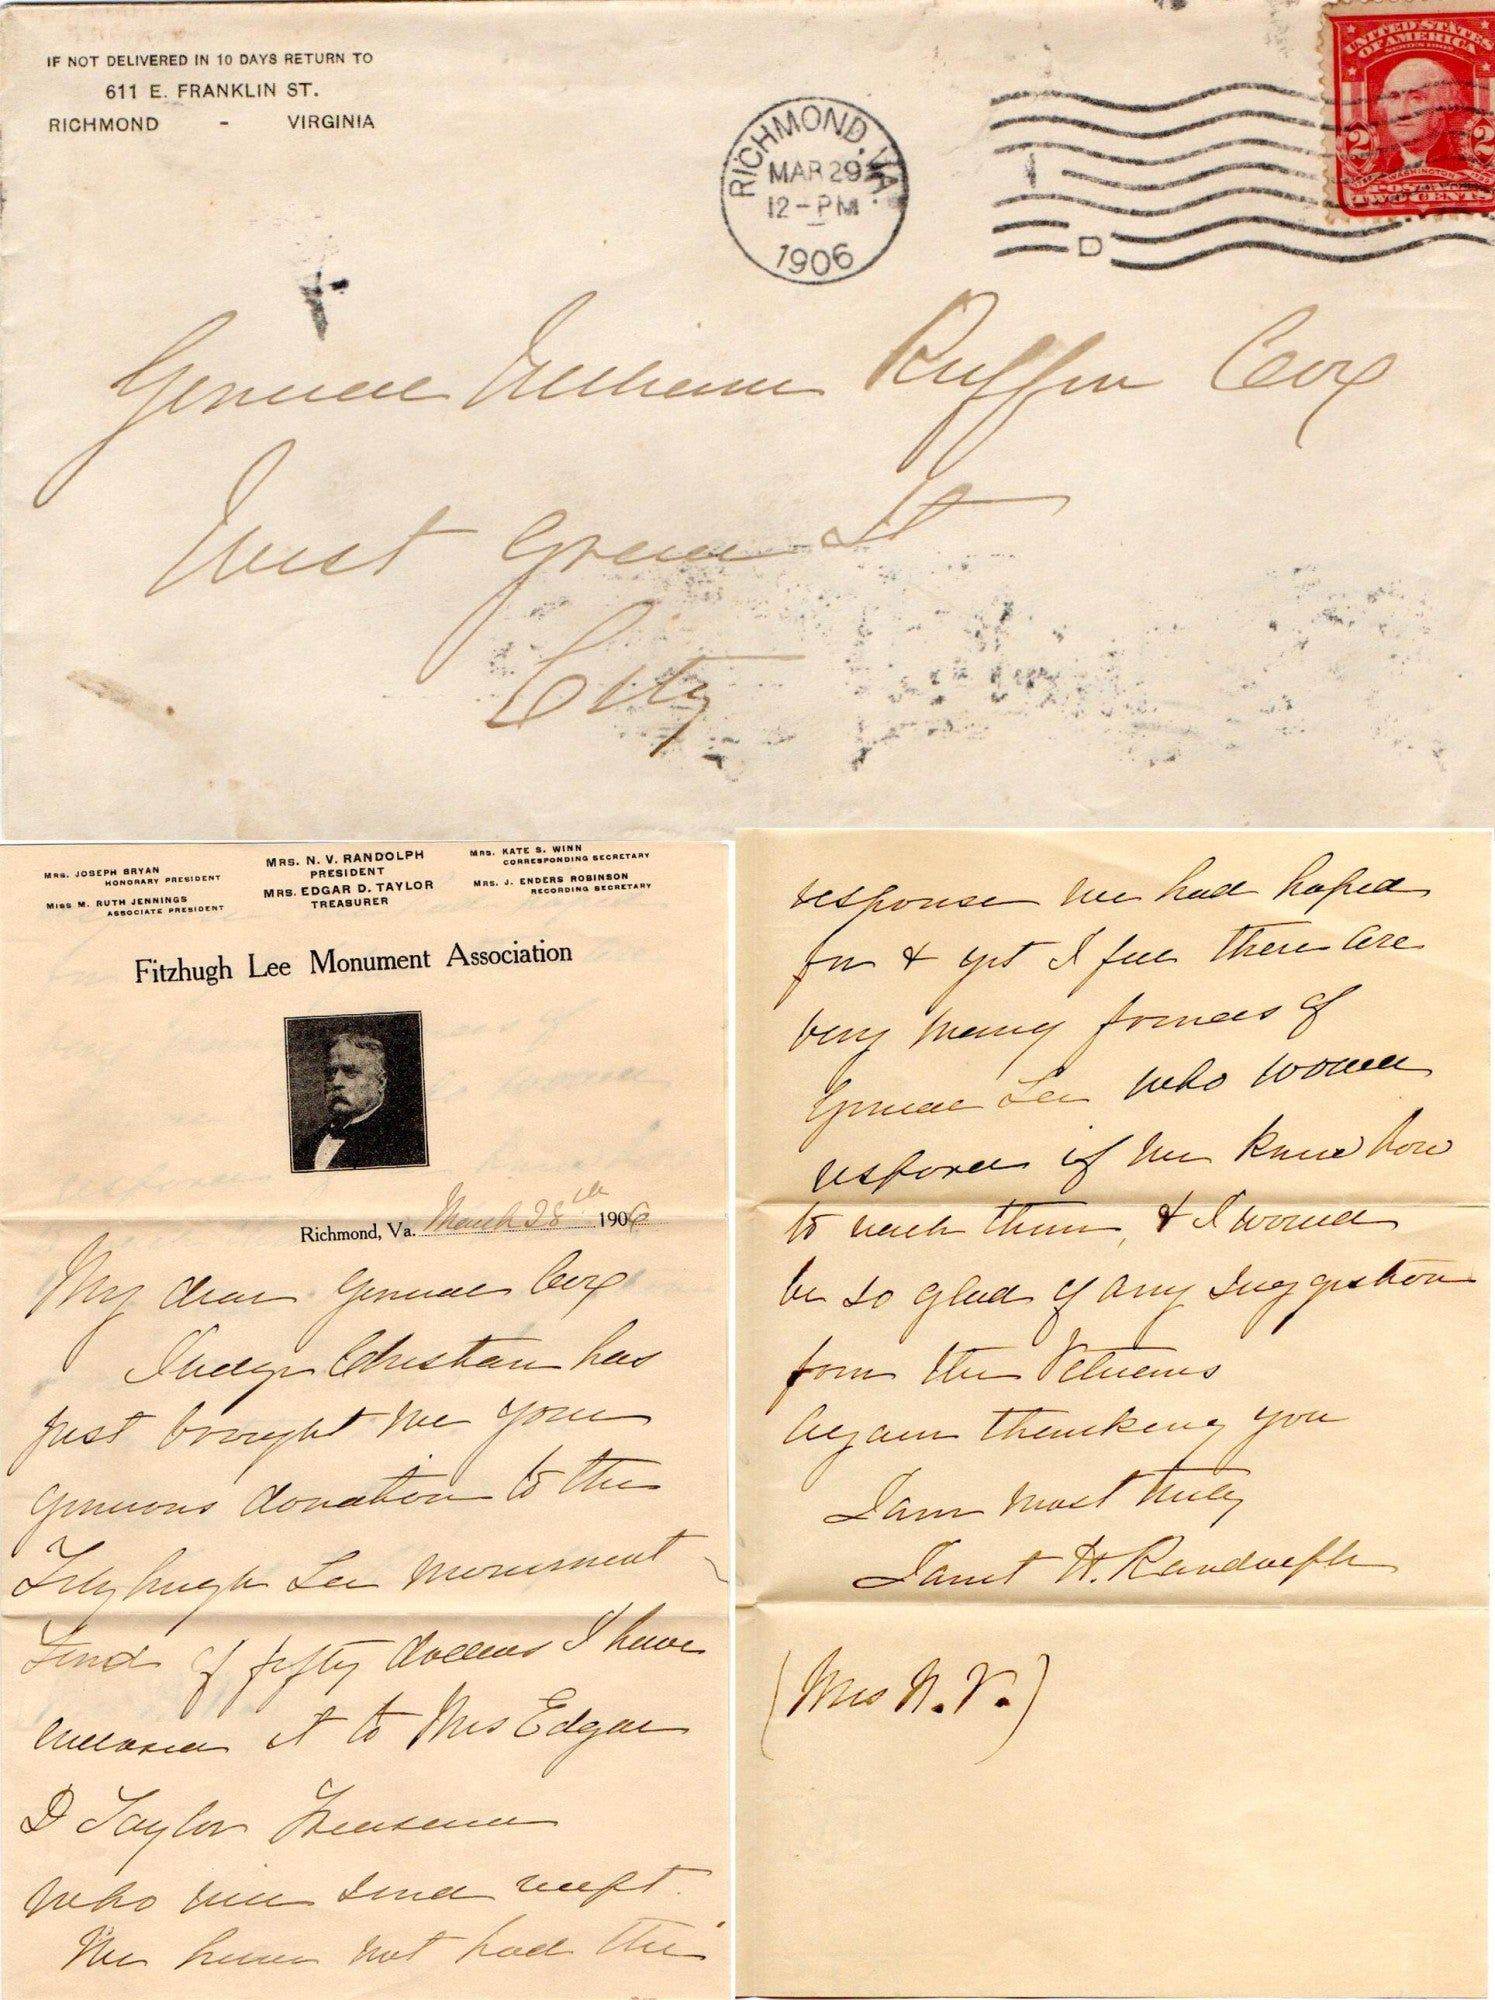 IF NOT DELIVERED IN 10 DAYS RETURN TO
611 E. FRANKLIN ST.
RICHMOND - VIRGINIA
RICHMOND, VA.
MAR 29
12-PM
1906
D
UNITED STATES
OF AMERICA
SERIES 1902
2 2
WASHINGTON
POSTAGE
TWO CENTS
General William Ruffin Cox
West Grace St
City
MRS. JOSEPH BRYAN
HONORARY PRESIDENT
MISS M. RUTH JENNINGS
ASSOCIATE PRESIDENT
MRS. N. V. RANDOLPH
PRESIDENT
MRS. EDGAR D. TAYLOR
TREASURER
MRS. KATE S. WINN
CORRESPONDING SECRETARY
MRS. J. ENDERS ROBINSON
RECORDING SECRETARY
Fitzhugh Lee Monument Association
Richmond, Va. March 28th 1906
My dear General Cox
Judge Christian has
just brought me your
generous donation to the
Fitzhugh Lee Monument
Fund of fifty dollars I have
enclosed it to Mrs Edgar
D Taylor Treasurer
who will send receipt.
We have not had the
response we had hoped
for & yet I feel there are
very many friends of
General Lee who would
respond if we knew how
to reach them, & I would
be so glad of any suggestion
from the Veterans
Again thanking you
I am most truly
Janet H. Randolph
(Mrs N. V.)